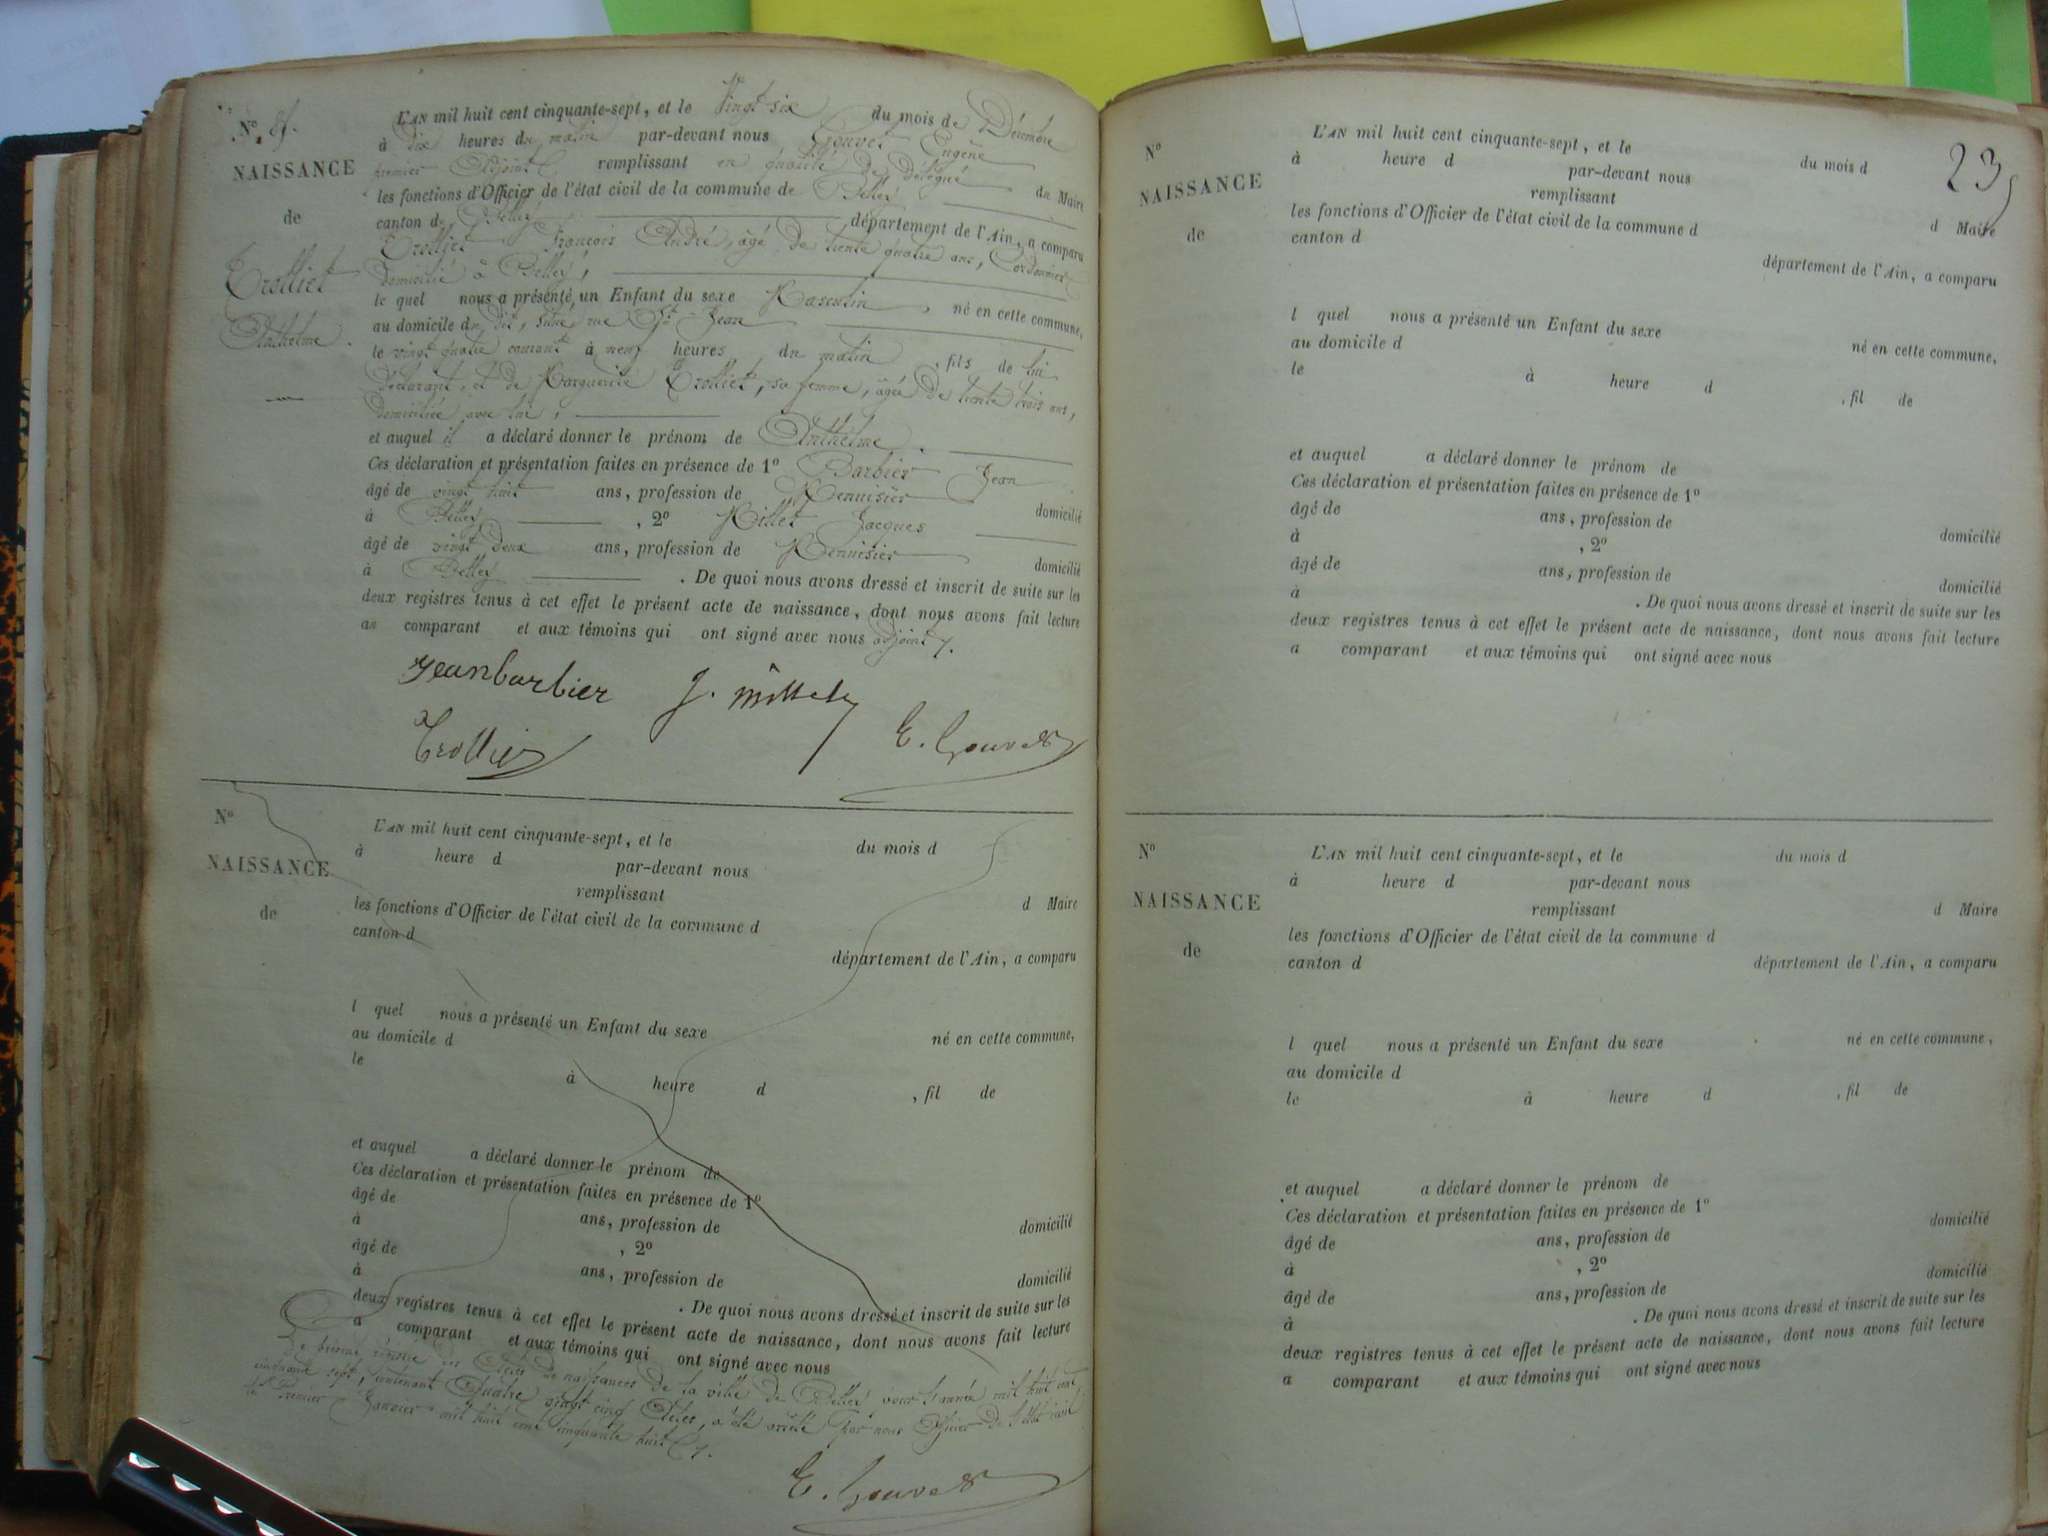 Nº 85.
NAISSANCE
de
Trolliet
Anthelme.
L'AN mil huit cent cinquante-sept, et le Vingt six du mois de Décembre
à dix heures du matin par-devant nous Gouvet Eugène
premier Adjoint remplissant en qualité de délégué du Maire
les fonctions d'Officier de l'état civil de la commune de Belley
canton de Belley département de l'Ain, a comparu
Trolliet François André, âgé de trente quatre ans, Cordonnier
domicilié à Belley,
le quel nous a présenté un Enfant du sexe Masculin, né en cette commune,
au domicile du dit, rue St Jean
le vingt quatre courant à neuf heures du matin, fils de lui
déclarant, et de Marguerite Trolliet, sa femme, âgée de trente trois ans,
domiciliée avec lui,
et auquel il a déclaré donner le prénom de Anthelme.
Ces déclaration et présentation faites en présence de 1º Barbier Jean
âgé de vingt huit ans, profession de Menuisier domicilié
à Belley, 2º Millet Jacques
âgé de vingt deux ans, profession de Menuisier domicilié
à Belley. De quoi nous avons dressé et inscrit de suite sur les
deux registres tenus à cet effet le présent acte de naissance, dont nous avons fait lecture
au comparant et aux témoins qui ont signé avec nous adjoint.
Jean barbier J. millet
Trolliet E. Gouvet
Nº
NAISSANCE
de
L'AN mil huit cent cinquante-sept, et le du mois d
à heure d par-devant nous
remplissant d Maire
les fonctions d'Officier de l'état civil de la commune d
canton d département de l'Ain, a comparu
l quel nous a présenté un Enfant du sexe né en cette commune,
au domicile d
le à heure d, fil de
et auquel a déclaré donner le prénom de
Ces déclaration et présentation faites en présence de 1º
âgé de ans, profession de domicilié
à, 2º
âgé de ans, profession de domicilié
à. De quoi nous avons dressé et inscrit de suite sur les
deux registres tenus à cet effet le présent acte de naissance, dont nous avons fait lecture
a comparant et aux témoins qui ont signé avec nous
Le présent registre des Actes de naissances de la ville de Belley, pour l'année mil huit cent
cinquante sept, contenant Quatre vingt cinq Actes, a été arrêté par nous Officier de l'état civil
le Premier Janvier mil huit cent cinquante huit.
E. Gouvet
23
Nº
NAISSANCE
de
L'AN mil huit cent cinquante-sept, et le du mois d
à heure d par-devant nous
remplissant d Maire
les fonctions d'Officier de l'état civil de la commune d
canton d département de l'Ain, a comparu
l quel nous a présenté un Enfant du sexe né en cette commune,
au domicile d
le à heure d, fil de
et auquel a déclaré donner le prénom de
Ces déclaration et présentation faites en présence de 1º
âgé de ans, profession de domicilié
à, 2º
âgé de ans, profession de domicilié
à. De quoi nous avons dressé et inscrit de suite sur les
deux registres tenus à cet effet le présent acte de naissance, dont nous avons fait lecture
a comparant et aux témoins qui ont signé avec nous
Nº
NAISSANCE
de
L'AN mil huit cent cinquante-sept, et le du mois d
à heure d par-devant nous
remplissant d Maire
les fonctions d'Officier de l'état civil de la commune d
canton d département de l'Ain, a comparu
l quel nous a présenté un Enfant du sexe né en cette commune,
au domicile d
le à heure d, fil de
et auquel a déclaré donner le prénom de
Ces déclaration et présentation faites en présence de 1º
âgé de ans, profession de domicilié
à, 2º
âgé de ans, profession de domicilié
à. De quoi nous avons dressé et inscrit de suite sur les
deux registres tenus à cet effet le présent acte de naissance, dont nous avons fait lecture
a comparant et aux témoins qui ont signé avec nous